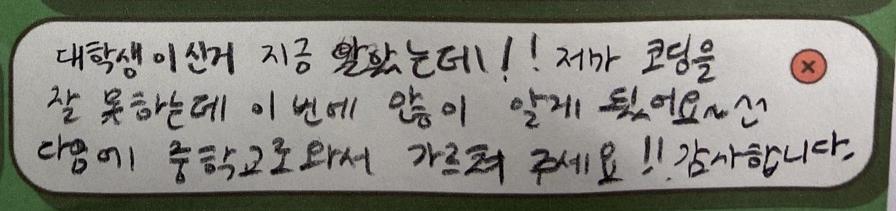 대학생이신거 지금 알았는데!! 저가 코딩을
잘 못하는데 이번에 많이 알게 됬어요~
다음에 중학교로와서 가르쳐 주세요!! 감사합니다.